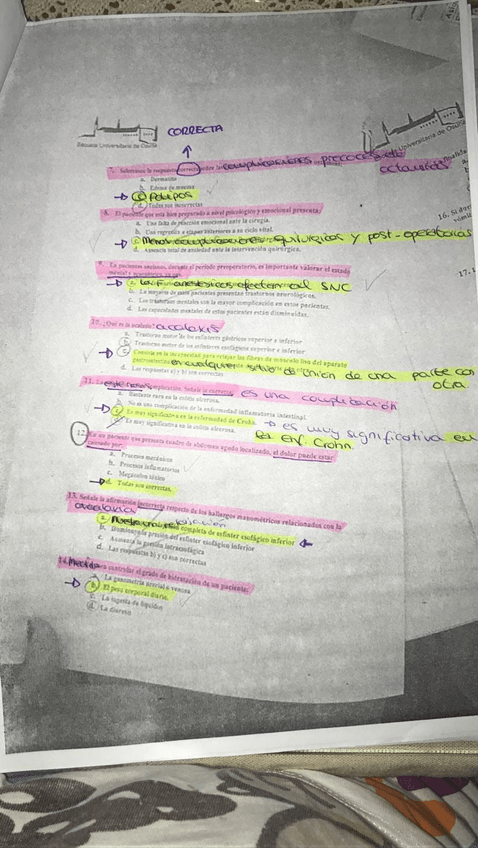 CORRECTA
Escuela Universitaria de Osuna
Universitaria de Osuna
7. Seleccione la respuesta correcta sobre las complicaciones precoces de
octavidas
a. Dermatitis
b. Edema de mucosa
c. Pólipos
d. Todas son incorrectas
8. El paciente que está bien preparado a nivel psicológico y emocional presenta:
a. Una falta de reacción emocional ante la cirugía.
b. Una regresión a etapas anteriores a su ciclo vital.
c. Menos complicaciones quirúrgicas y post-operatorias
d. Ausencia total de ansiedad ante la intervención quirúrgica.
16. Si
9. En pacientes ancianos, durante el periodo preoperatorio, es importante valorar el estado
mental y
a. La F. anestésicos afectan al SNC
b. La mayoría de estos pacientes presentan trastornos neurológicos.
c. Los trastornos mentales son la mayor complicación en estos pacientes.
d. Las capacidades mentales de estos pacientes están disminuidas.
17.
10. ¿Qué es la acalasia?
a. Trastorno motor de los esfínter gástricos superior e inferior
b. Trastorno motor de los esfínter esofágicos superior e inferior
c. Consiste en la incapacidad para relajar las fibras de músculo liso del aparato
gastrointestinal en cualquier sitio de unión de una parte con
otra
d. Las respuestas a) y b) son correctas
11. complicación. Señale la correcta es una complicación
a. Bastante rara en la colitis ulcerosa.
b. No es una complicación de la enfermedad inflamatoria intestinal.
c. Es muy significativa en la enfermedad de Crohn. → es muy significativa en
la enf. Crohn.
d. Es muy significativa en la colitis ulcerosa.
12. En un paciente que presenta cuadro de abdomen agudo localizado, el dolor puede estar
causado por:
a. Procesos mecánicos
b. Procesos inflamatorios
c. Megacolon tóxico
d. Todas son correctas.
13. Señale la afirmación incorrecta respecto de los hallazgos manométricos relacionados con la
acalasia
a. relajación completa de esfínter esofágico inferior
b. Disminuye la presión del esfínter esofágico inferior
c. Aumenta la presión intraesofágica
d. Las respuestas b) y c) son correctas
14. Medida para controlar el grado de hidratación de un paciente:
a. La gasometría arterial o venosa
b. El peso corporal diario.
c. La ingesta de líquidos
d. La diuresis